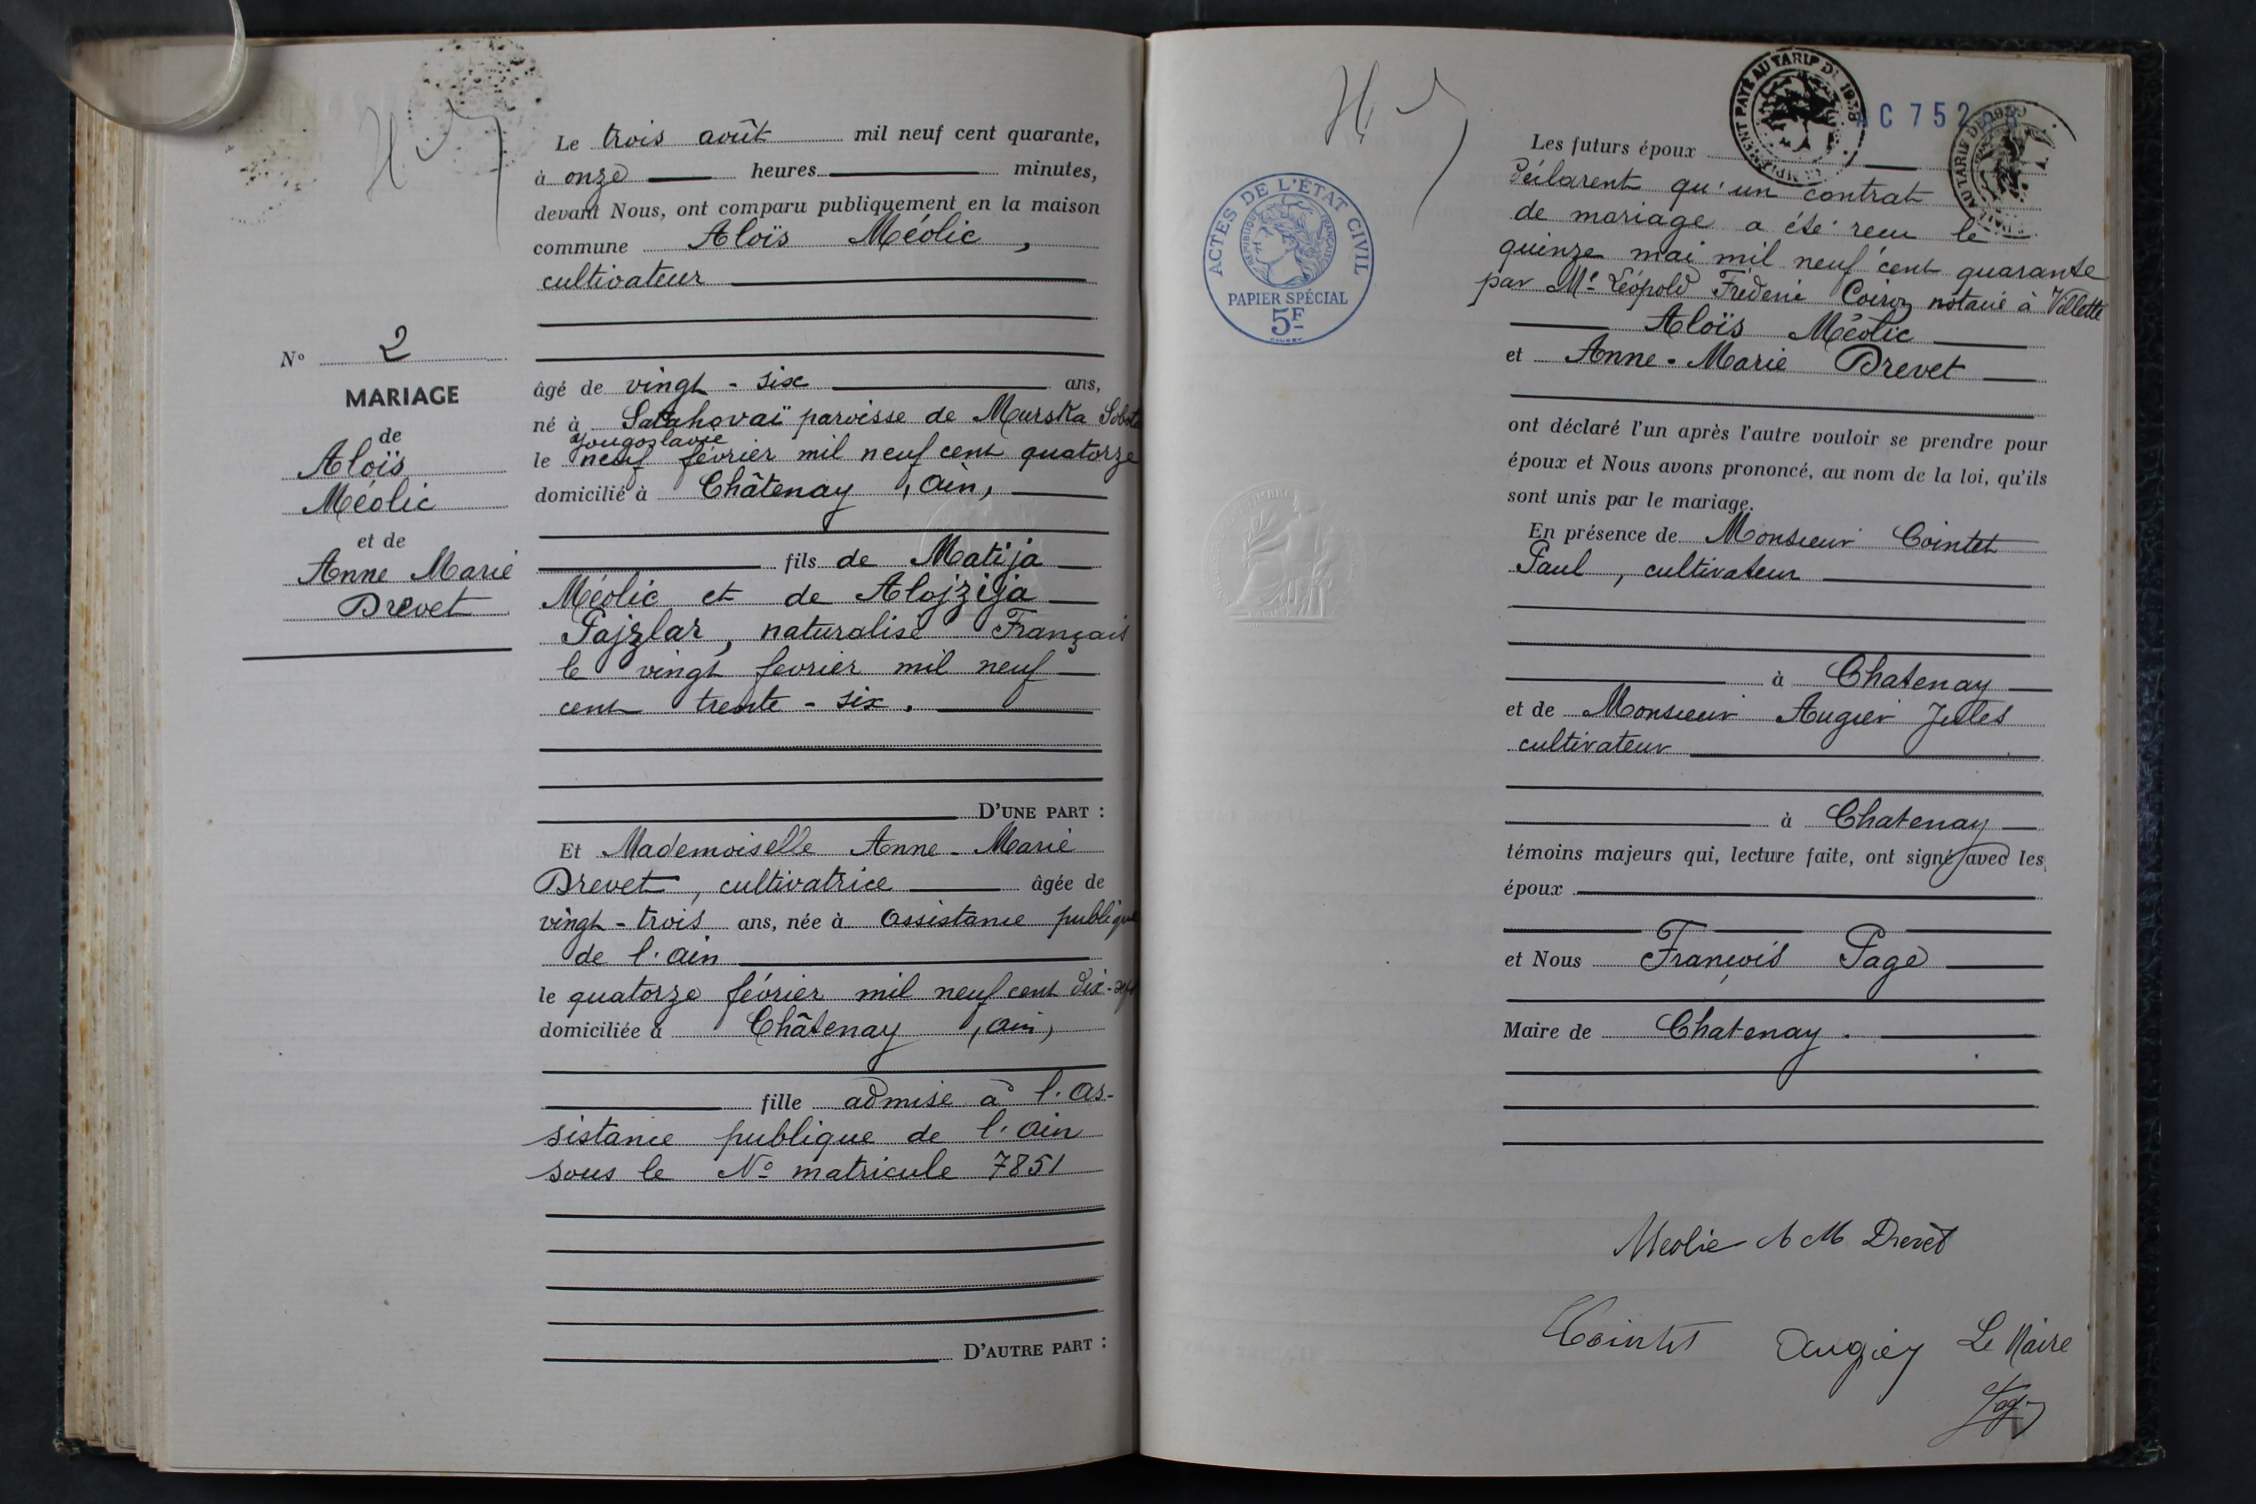 Le trois août mil neuf cent quarante,
à onze heures minutes,
devant Nous, ont comparu publiquement en la maison
commune Aloïs Méolic,
cultivateur
N° 2
MARIAGE
de
Aloïs
Méolic
et de
Anne Marie
Drevet
âgé de vingt-six ans,
né à paroisse de Murska Sobota
Yougoslavie
le neuf février mil neuf cent quatorze
domicilié à Châtenay (Ain)
fils de Matija
Méolic et de Alojzija
Pajzlar, naturalisé Français
le vingt fevrier mil neuf
cent trente-six.
D'UNE PART :
Et Mademoiselle Anne-Marie
Drevet, cultivatrice âgée de
vingt-trois ans, née à assistance publique
de l'ain
le quatorze février mil neuf cent dix-sept
domiciliée à Châtenay (ain)
fille admise à l'as-
sistance publique de l'ain
sous le N° matricule 7851
D'AUTRE PART :
AC 752
ACTES DE L'ÉTAT CIVIL
RÉPUBLIQUE FRANÇAISE
PAPIER SPÉCIAL
5F
Les futurs époux
déclarent qu'un contrat
de mariage a été recu le
quinze mai mil neuf cent quarante
par Me Léopold Fréderic notaire à Villette
Aloïs Méolic
et Anne-Marie Drevet
ont déclaré l'un après l'autre vouloir se prendre pour
époux et Nous avons prononcé, au nom de la loi, qu'ils
sont unis par le mariage.
En présence de Monsieur Cointet
Paul, cultivateur
à Chatenay
et de Monsieur Augier Jules
cultivateur
à Chatenay
témoins majeurs qui, lecture faite, ont signé avec les
époux
et Nous François Page
Maire de Chatenay.
Meolic A M Drevet
Cointet Augier Le Maire
Page